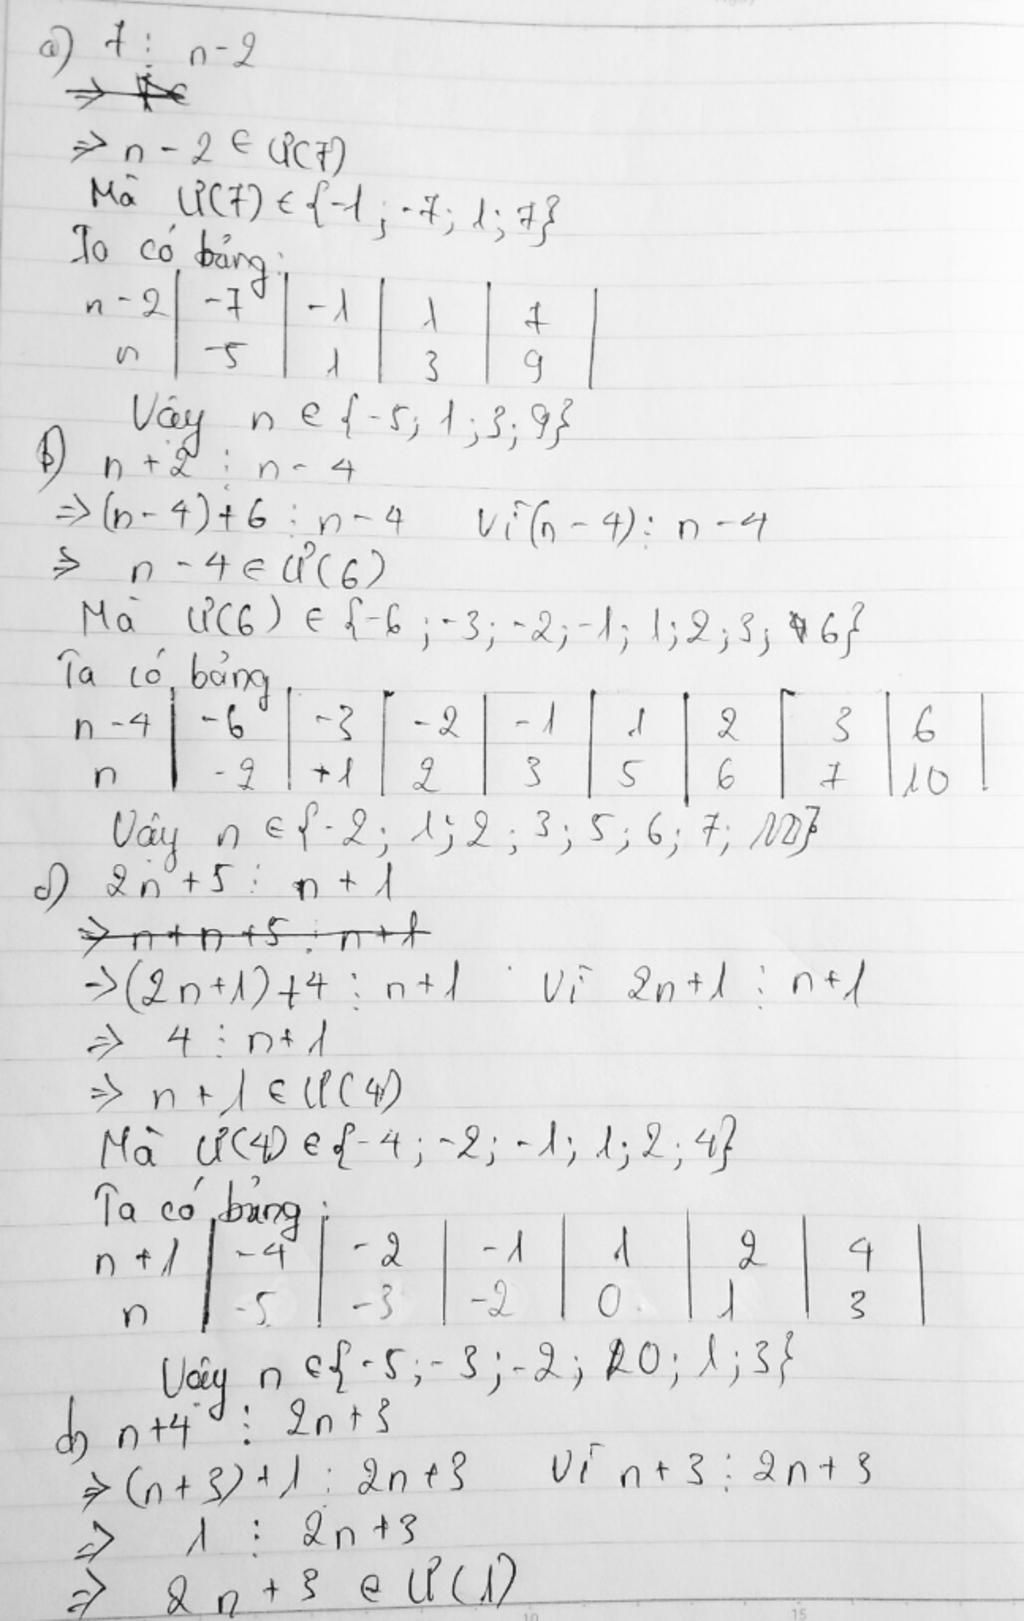 a) 7 ⋮ n-2
⇒ n - 2 ∈ Ư(7)
Mà Ư(7) ∈ {-1; -7; 1; 7}
Ta có bảng:
n-2 | -7 | -1 | 1 | 7 |
n | -5 | 1 | 3 | 9 |
Vậy n ∈ {-5; 1; 3; 9}
b) n + 2 ⋮ n - 4
⇒ (n - 4) + 6 ⋮ n - 4 Vì (n - 4) ⋮ n - 4
⇒ n - 4 ∈ Ư(6)
Mà Ư(6) ∈ {-6; -3; -2; -1; 1; 2; 3; 6}
Ta có bảng
n - 4 | -6 | -3 | -2 | -1 | 1 | 2 | 3 | 6 |
n | -2 | +1 | 2 | 3 | 5 | 6 | 7 | 10 |
Vậy n ∈ {-2; 1; 2; 3; 5; 6; 7; 10}
c) 2n + 5 ⋮ n + 1
⇒ n + n + 5 ⋮ n + 1
→ (2n+1) + 4 ⋮ n+1 Vì 2n+1 ⋮ n+1
⇒ 4 ⋮ n+1
⇒ n + 1 ∈ Ư(4)
Mà Ư(4) ∈ {-4; -2; -1; 1; 2; 4}
Ta có bảng:
n + 1 | -4 | -2 | -1 | 1 | 2 | 4 |
n | -5 | -3 | -2 | 0 | 1 | 3 |
Vậy n ∈ {-5; -3; -2; 0; 1; 3}
d) n+4 ⋮ 2n+3
⇒ (n+3) + 1 ⋮ 2n+3 Vì n+3 ⋮ 2n+3
⇒ 1 ⋮ 2n+3
⇒ 2n + 3 ∈ Ư(1)
10 15